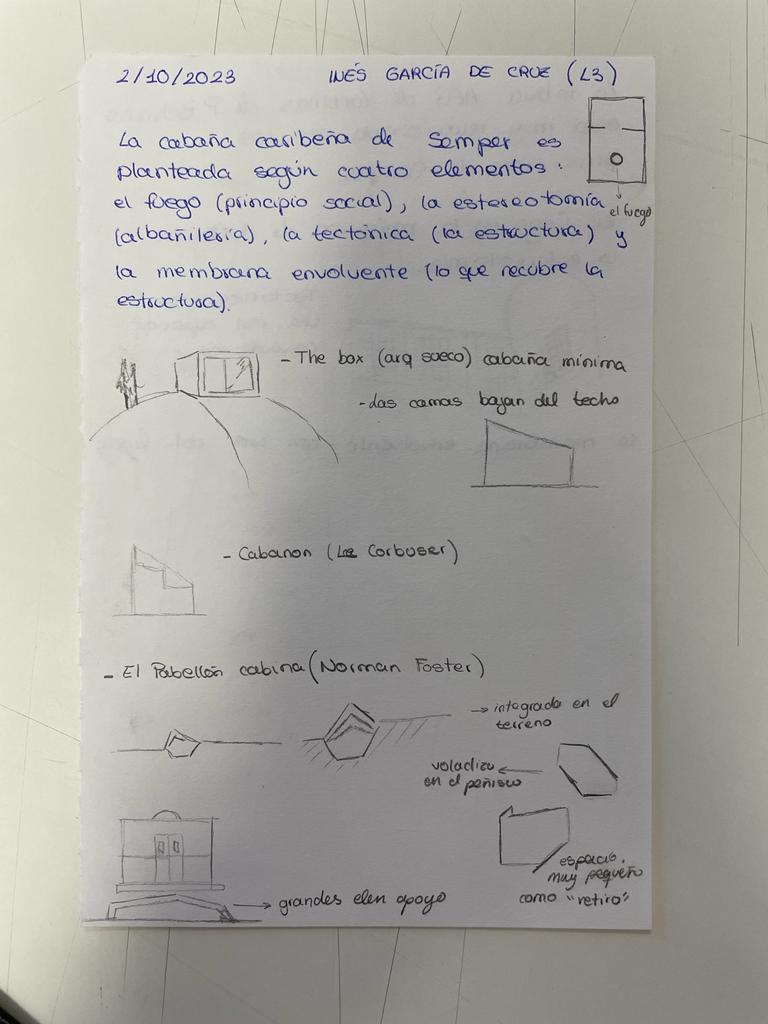 2/10/2023 INÉS GARCÍA DE CRUZ (L3)
La cabaña caribeña de Semper es
planteada según cuatro elementos:
el fuego (principio social), la estereotomía
(albañilería), la tectónica (la estructura) y
la membrana envolvente (lo que recubre la
estructura).
el fuego
- The box (arq sueco) cabaña mínima
- las camas bajan del techo
- Cabanon (Le Corbuser)
- El Pabellón cabina (Norman Foster)
→ integrado en el
terreno
voladizo
en el peñisco
espacio.
muy pequeño
como "retiro"
→ grandes elen apoyo